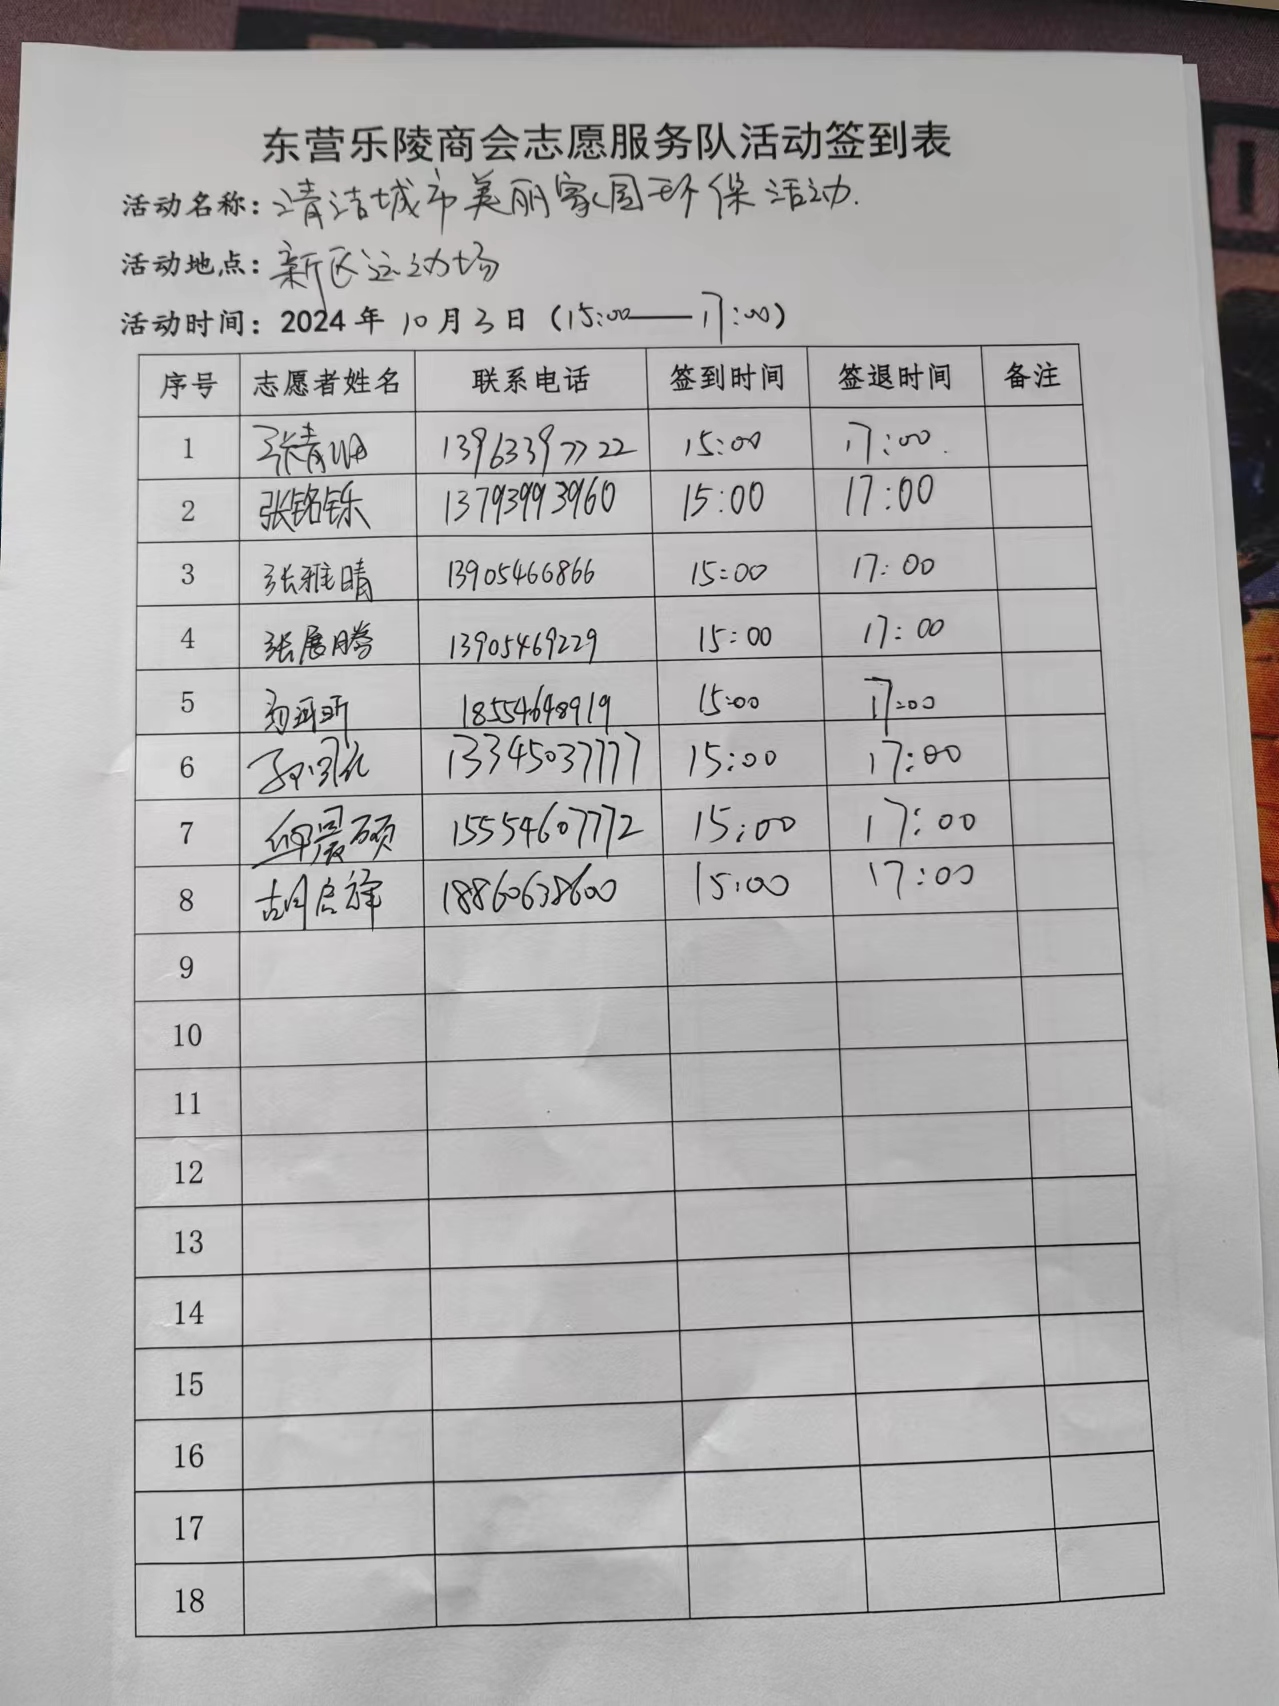 东营乐陵商会志愿服务队活动签到表
活动名称：清洁城市美丽家园环保活动.
活动地点：新区运动场
活动时间：2024年10月3日（15:00——17:00）
序号 志愿者姓名 联系电话 签到时间 签退时间 备注
1 张青 13963397722 15:00 17:00.
2 张铭铄 13793993960 15:00 17:00
3 张雅晴 13905466866 15:00 17:00
4 张展腾 13905469229 15:00 17:00
5 18554648919 15:00 17:00
6 13345037777 15:00 17:00
7 晨硕 15554607772 15:00 17:00
8 胡启祥 18860638600 15:00 17:00
9
10
11
12
13
14
15
16
17
18